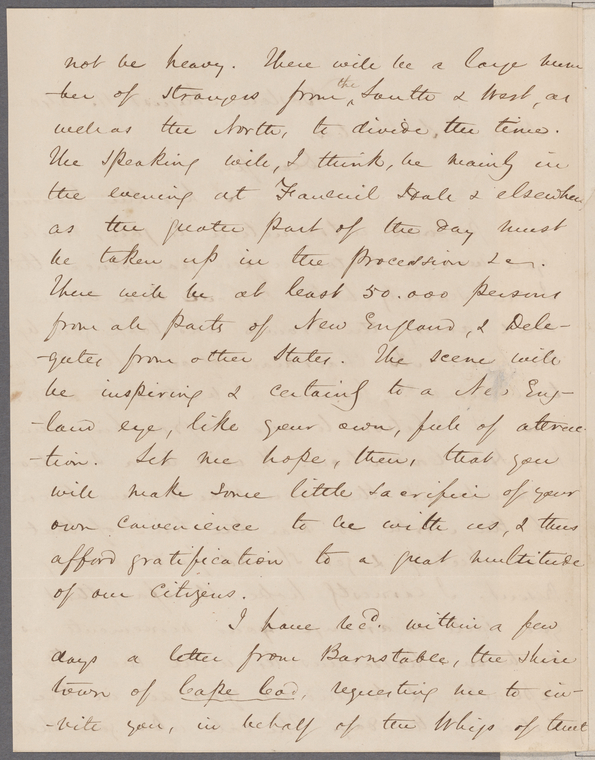 not be heavy. There will be a large num
-ber of strangers from the South & West, as
well as the North, to divide the time.
The speaking will, I think, be mainly in
the evening at Faneuil Hall & elsewhere
as the greater part of the day must
be taken up in the procession &c.
There will be at least 50.000 persons
from all parts of New England, & Dele-
-gates from other States. The scene will
be inspiring & certainly to a New Eng-
-land eye, like your own, full of attrac-
-tion. Let me hope, then, that you
will make some little sacrifice of your
own convenience to be with us, & thus
afford gratification to a great multitude
of our Citizens.
I have recd. within a few
days a letter from Barnstable, the shire
town of Cape Cod, requesting me to in-
-vite you, in behalf of the Whigs of that